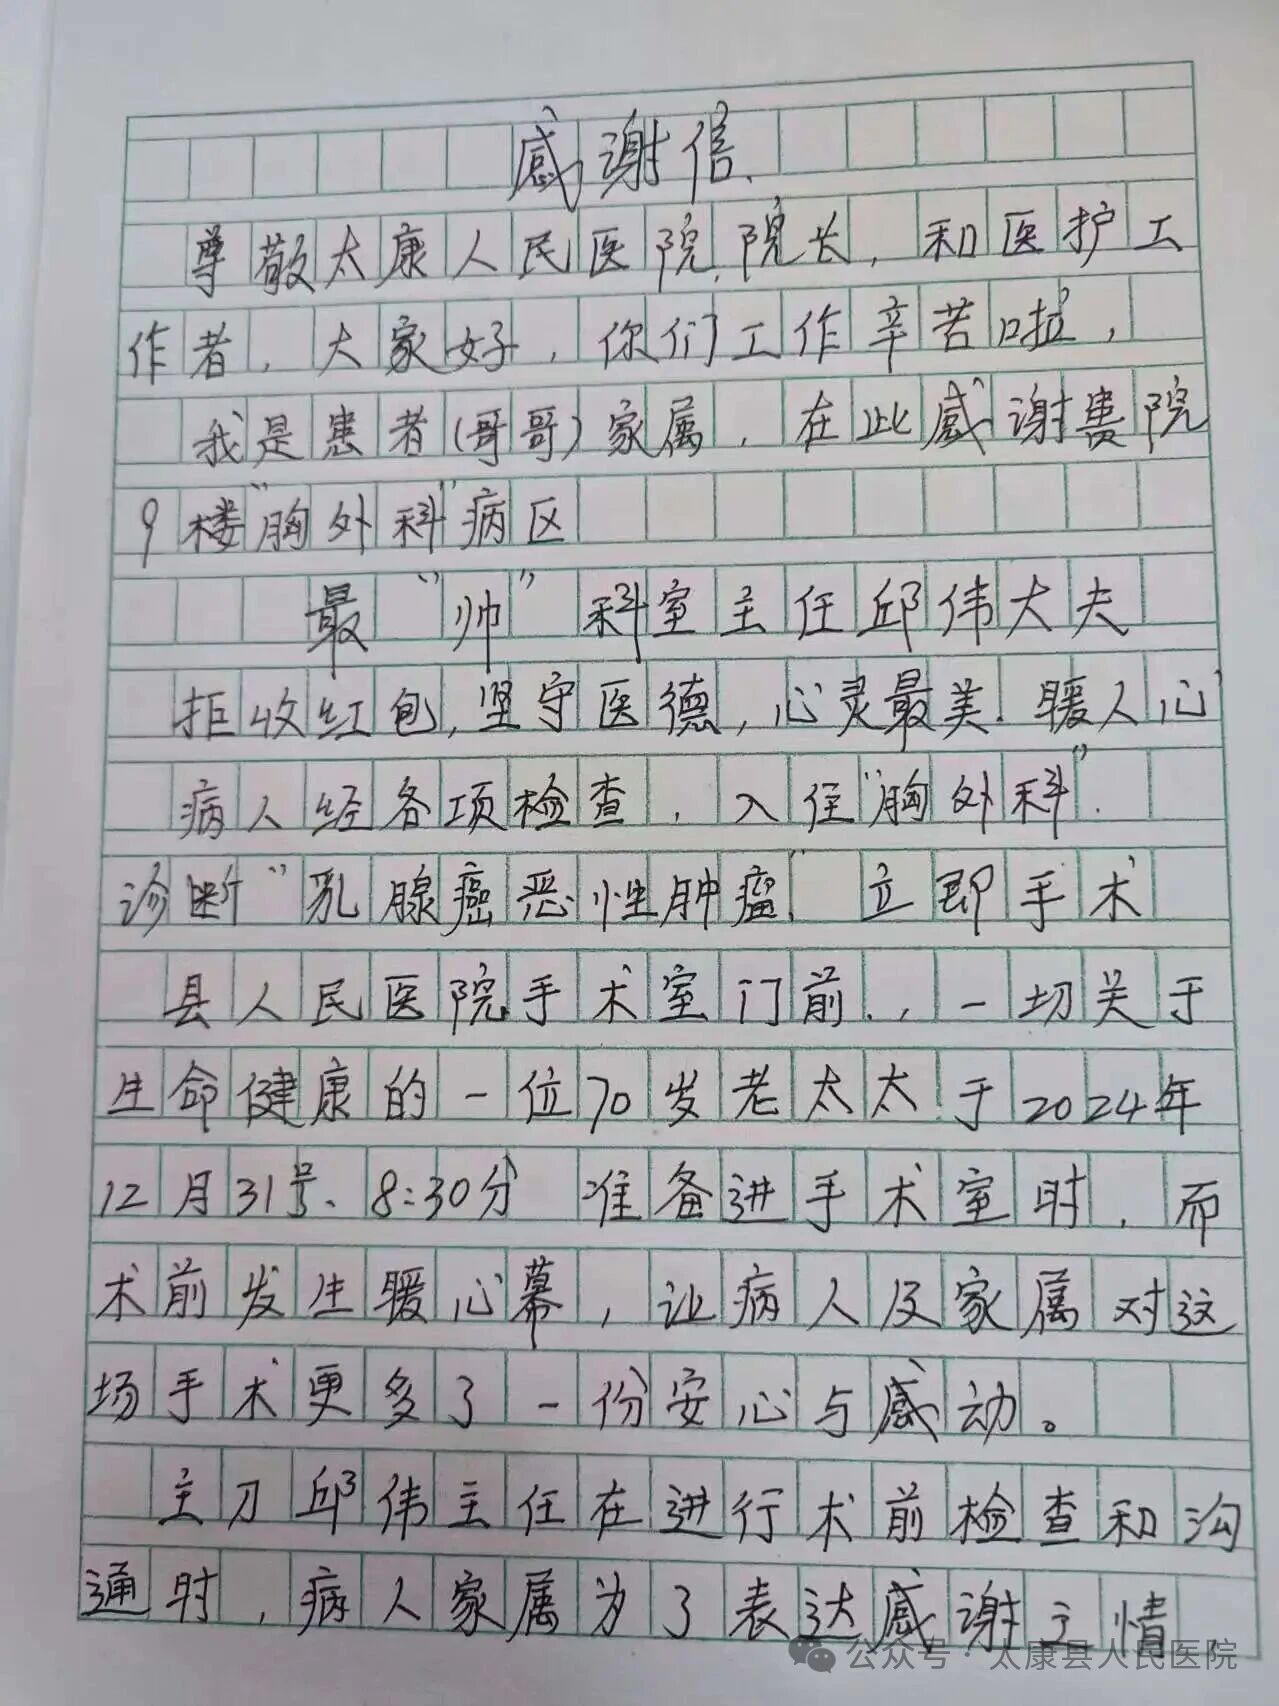 感谢信.
尊敬太康人民医院.院长,和医护工
作者,大家好,你们工作辛苦啦,
我是患者(哥哥)家属,在此感谢贵院
9楼"胸外科"病区
最"帅"科室主任邱伟大夫
拒收红包,坚守医德,心灵最美.暖人心
病人经各项检查,入住"胸外科".
诊断"乳腺癌恶性肿瘤"立即手术
县人民医院手术室门前.,一切关于
生命健康的一位70岁老太太于2024年
12月31号、8:30分 准备进手术室时,而
术前发生暖心幕,让病人及家属对这
场手术更多了一份安心与感动。
主刀邱伟主任在进行术前检查和沟
通时,病人家属为了表达感谢之情
公众号·太康县人民医院